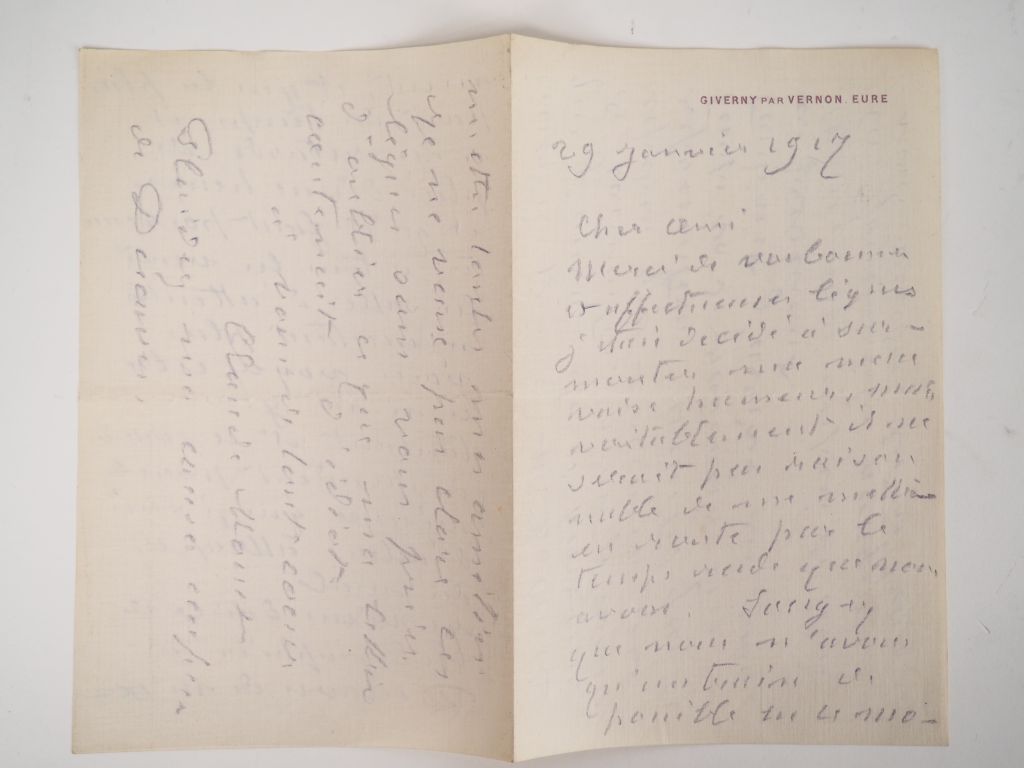 GIVERNY PAR VERNON. EURE
29 Janvier 1917
Cher ami
Merci de vos bonnes
et affectueuses lignes
j'étais décidé à sur-
monter ma mau
vaise humeur, mais
véritablement il ne
serait pas raison
nable de me mettre
en route par le
temps rude que nous
avons. Songez
que nous n'avons
qu'un train de
possible en ce mo-
toutes mes amitiés
Je ne veux pas clore ces
lignes sans vous prier
d'oublier ce que ma lettre
contenait d'idiot
à vous tout coeur
Claude Monet
de Durand.